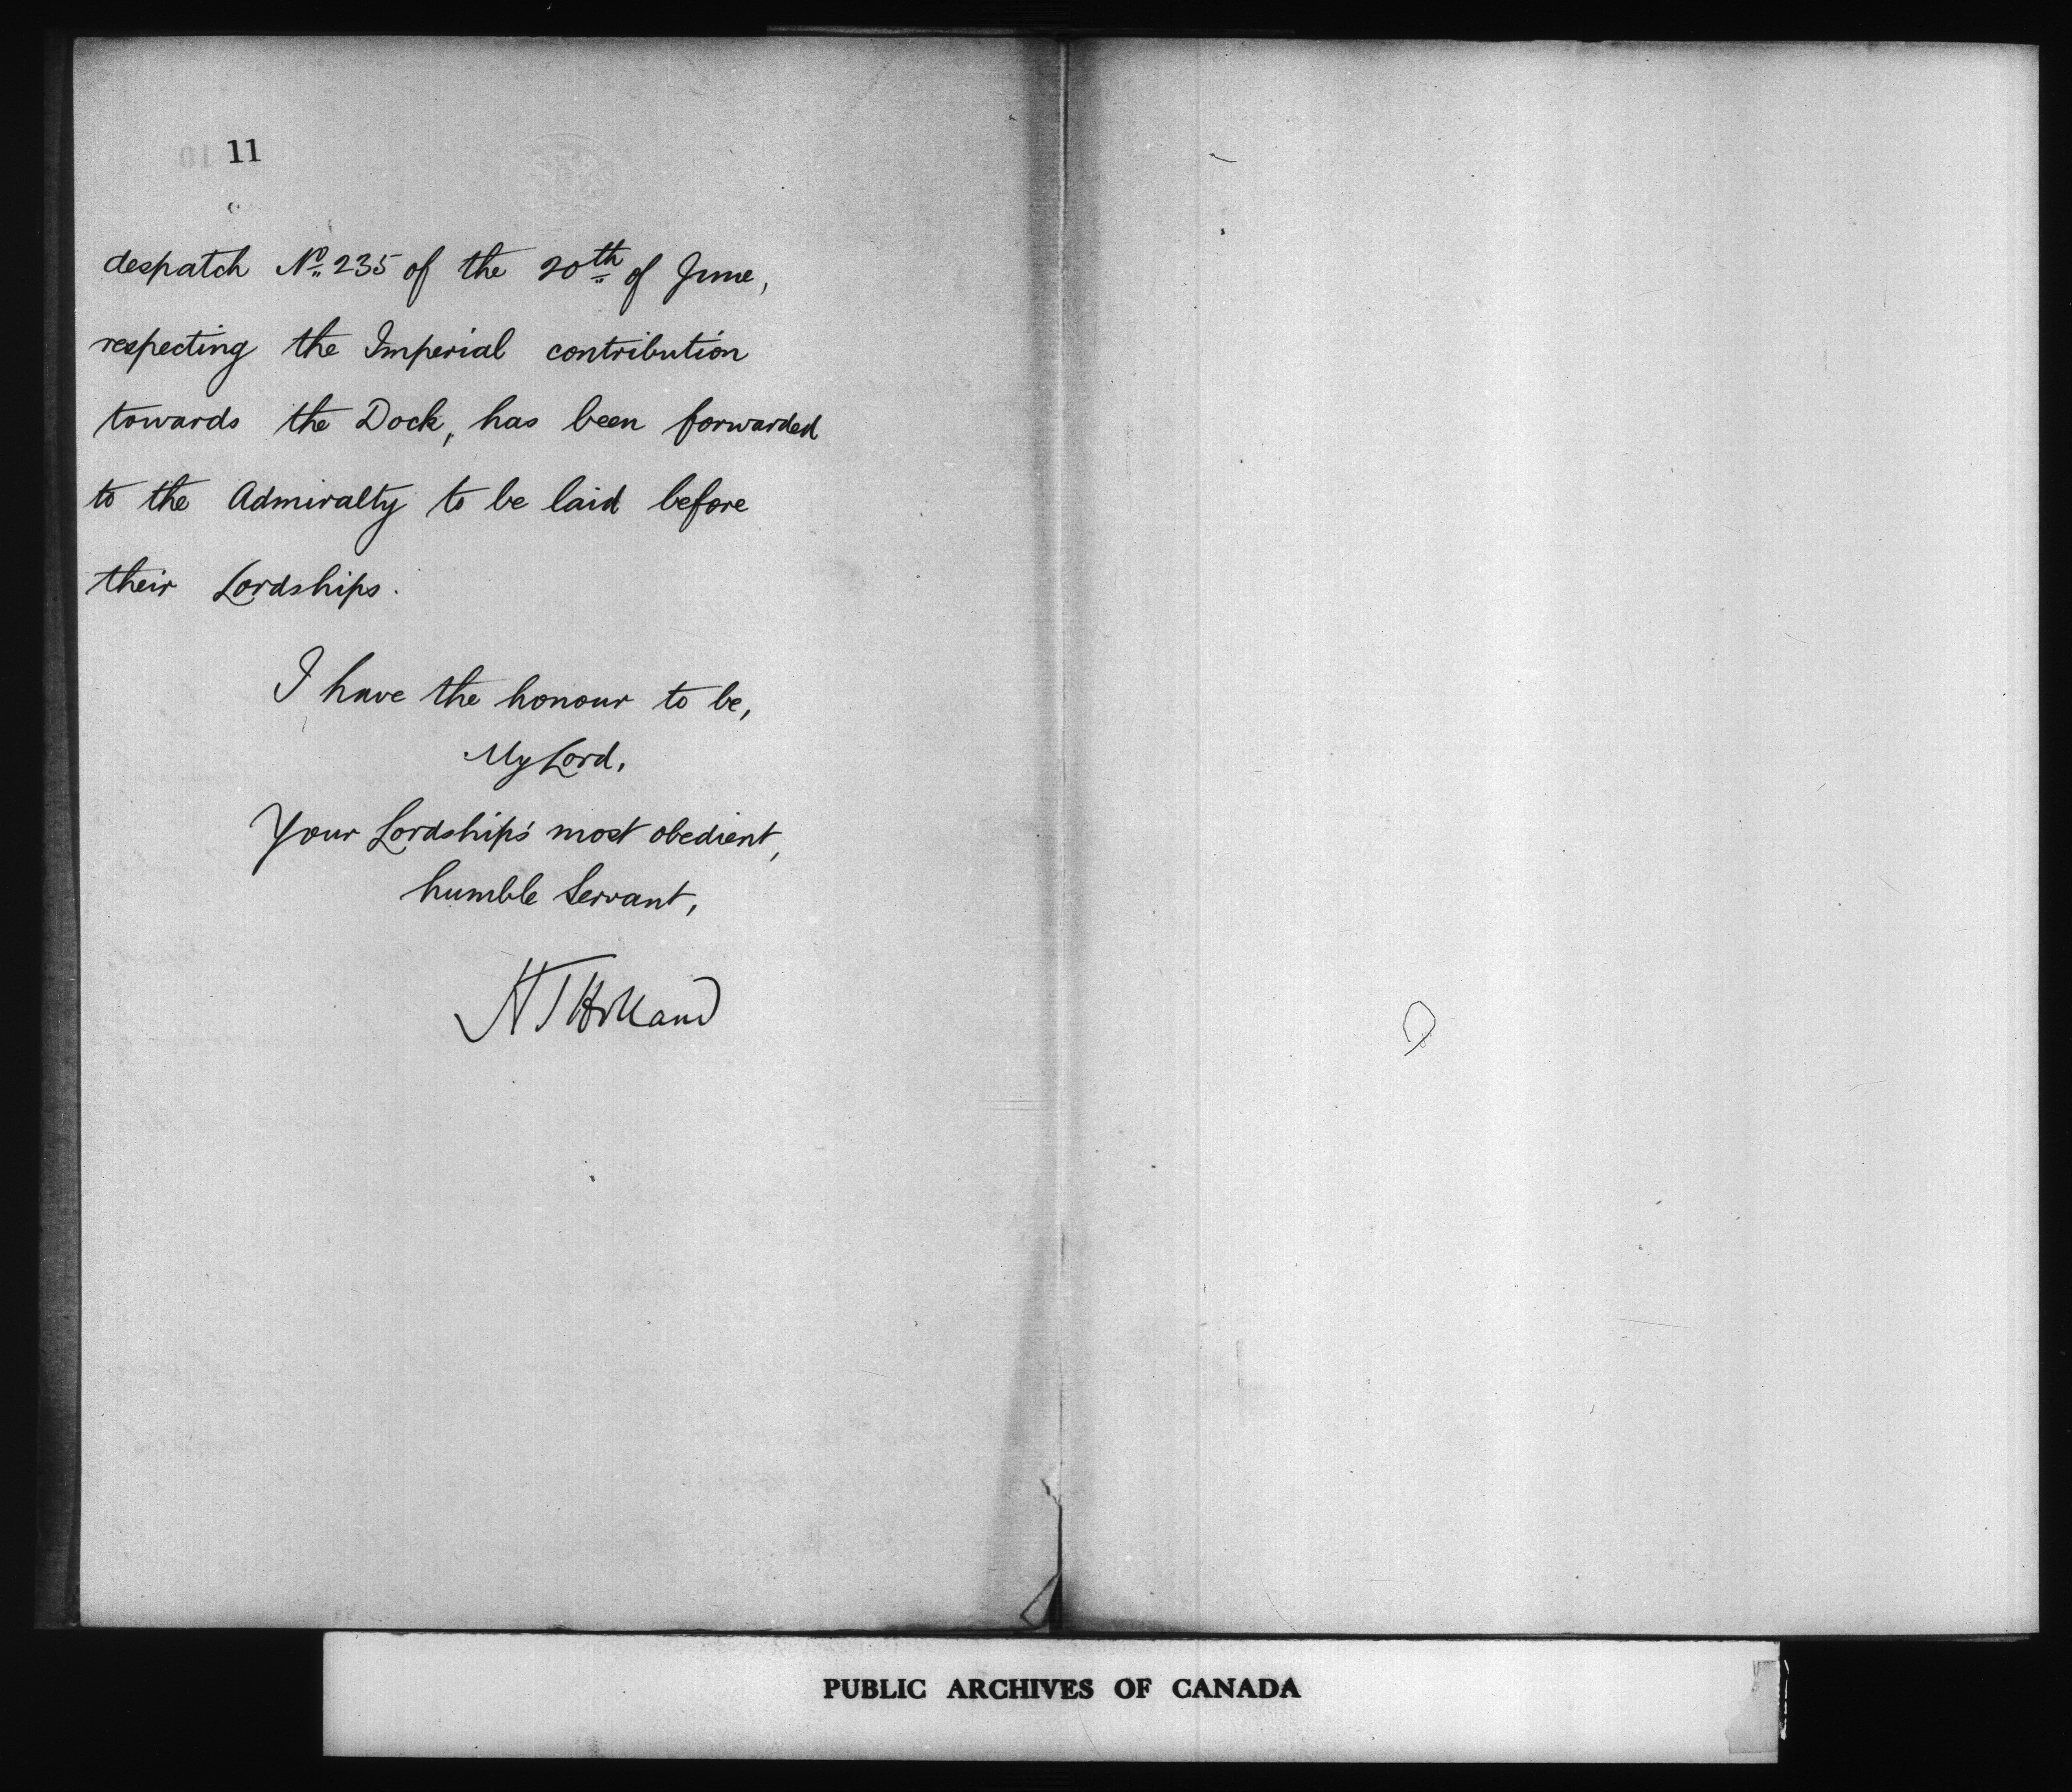 11
despatch No. 235 of the 20th of June,
respecting the Imperial contribution
towards the Dock, has been forwarded
to the Admiralty to be laid before
their Lordships.
I have the honour to be,
My Lord,
Your Lordship's most obedient,
humble Servant,
H T Holland
PUBLIC ARCHIVES OF CANADA